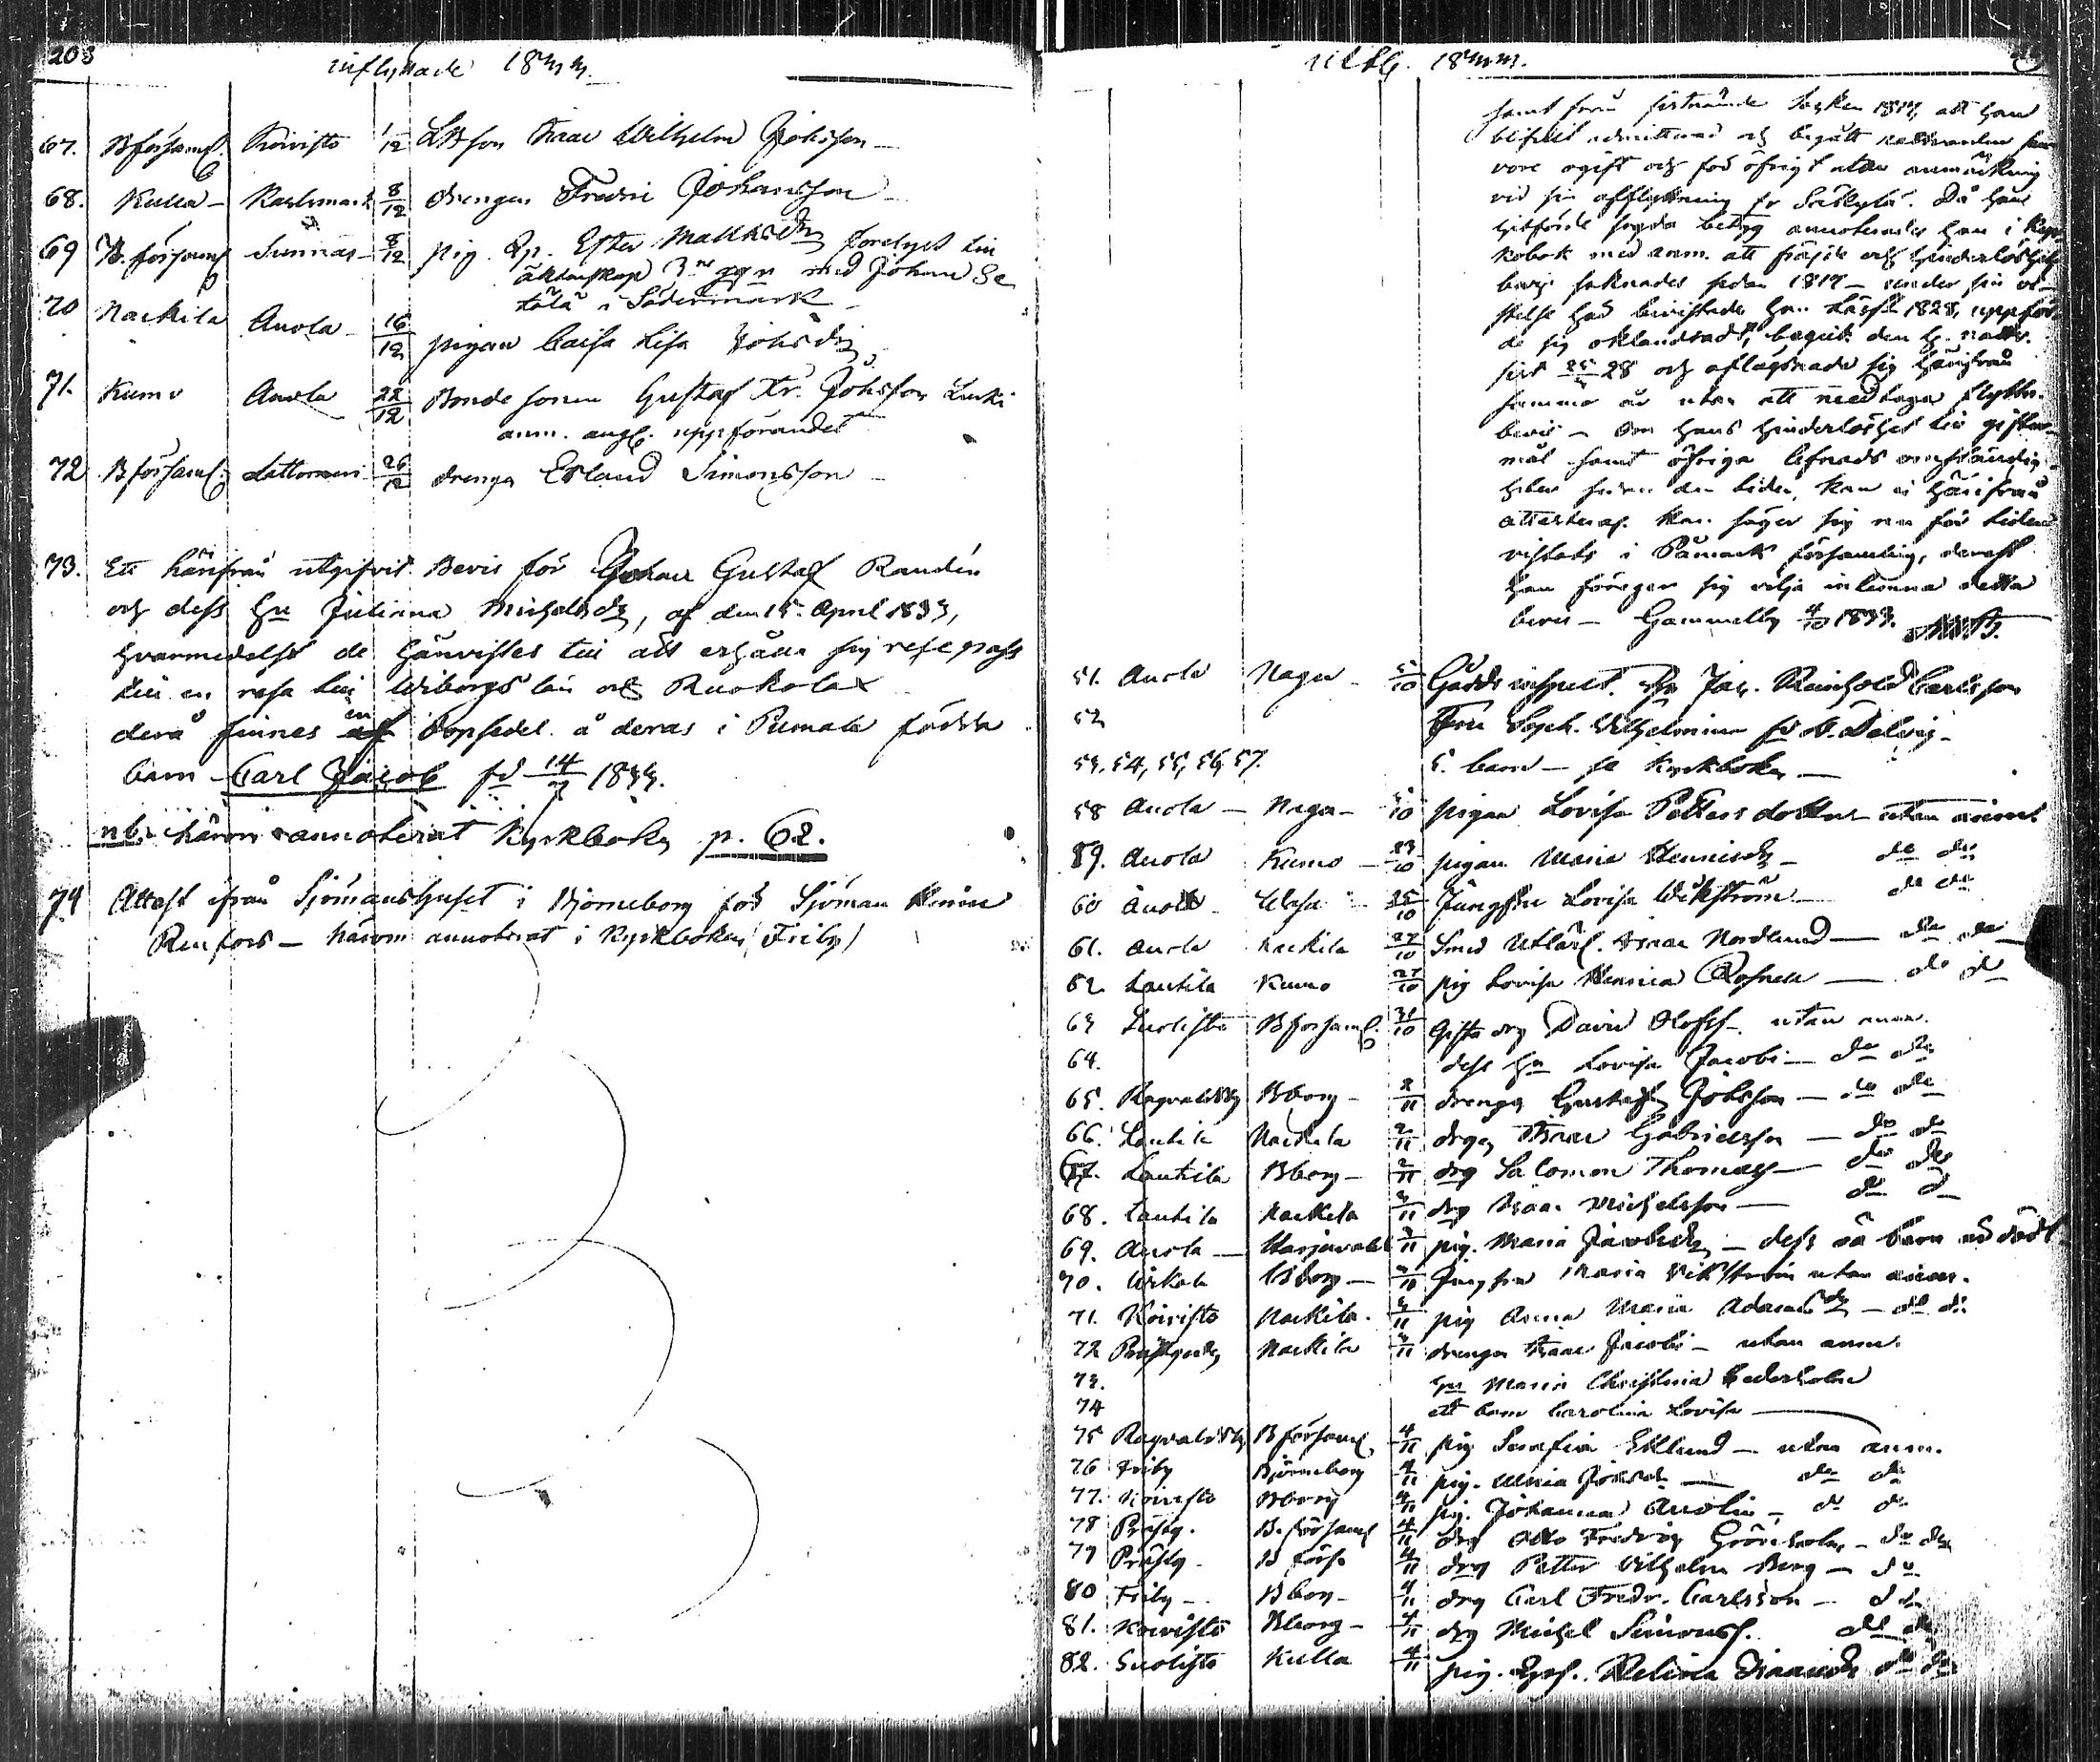 203
inflyttade 1833.
67. Bförsaml. Koivisto 1/12 LBson Isaac Wilhelm Johsson —
68. Kulla — Karlsmark 8/12 drengen Fredric Johansson —
69 B.församl Sunnäs — 8/12 pig. Ester Mattsdr forelyst till
äktenskap 3ne ggr med Johan Se
tälä i Södermark —
70 Nackila Anola — 16/12 pigan Caisa Lisa Johsdr
71. Kumo Anola 22/12 Bondesonen Gustaf Johsson Lurki
anm. angl. uppförandet
72 Bförsaml. Lattomeri 26/12 dreng Erland Simonsson —
73. Ett härifrån utgifvit Bevis för Johan Gustaf Randén
och dess hu Juliana Michelsdr, af den 15. April 1833,
hvarmedelst de hänvistes till att erhålla sig respass
till en resa till Wiborgs län och Ruokolax
derå finnes en Dopsedel å deras i Pumala födda
barn Carl Jacob fd 14/7 1833.
nb. härom annoterat kyrkboken p. 62.
74 Attest ifrån Sjömanshuset i Björneborg för Sjöman
Renfors — härom annoterat i kyrkboken (Friby)
utfl. 1833.
samt förstnämnde socken 1817, att han
blifvit admitterad och begått nattvarden
vore ogift och för öfrigt utan anmärkning
vid sin afflyttning fr Säkylä. Då han
hitförde sagda betyg annoterades han i
kobok med anm. att frejde och hinderlöshets
bevis saknades sedan 1817 — under sin vi-
stelse här bevistade han Läsf. 1828, uppför
de sig oklandrad, begick den h. nattv.
sist 25/ 28 och aflägsnade sig härifrån
samma år utan att medtaga flyttn.
bevis — Om hans hinderlöshet till gifter-
mål samt öfriga lefnads omständig-
heter sedan den tiden, kan ej härifrån
attesteras. Han säger sig nu för tiden
vistats i Påmark församling, derest
han föreger sig vilja inlemna detta
bevis — Gammelby 4/10 1833.
51. Anola Nagu — 5/10 Gårds inspect. Jac. Reinhold Carlsson
52 Fru Soph. Wilhelmina fd
53. 54, 55, 56, 57. 5. barn — se Kyrkboken —
58 Anola — Nagu — 5/10 pigan Lovisa Petters dotter utan anm.
59. Anola Kumo — 23/10 pigan Maria Hennricsdr — do do
60 Anola — Wasa — 25/10 Jungfru Lovisa Wikström — do do
61. Anola Nackila 27/10 Smed Utlärl. Isaac Nordlund — do do
62 Lautila Kumo 27/10 pig Lovisa Henrica Rosnell — do do
63 Suolisto Bförsaml. 31/10 Gifta drg David Olofss. utan anm.
64. dess hu Lovisa Jacobs — do do
65. Ragvaldsby Bborg — 2/11 drengen Gustaf Johsson — do do
66. Lautila Nackila 2/11 drgn Isaac Gabrielsson — do do
67. Lautila Bborg — 2/11 drg Salomon Thomass — do do
68. Lautila Nackila 2/11 drg Isaac Michelsson — do do
69. Anola — Harjavalt 2/11 pig. Maria Jacobsdr — dess oä barn är död
70. Wirkola Bborg — 2/11 Jungfru Maria Vikström utan anm.
71. Koivisto Nackila. 2/11 pig Anna Maria Adamsdr — do do
72 Prästgrd Nackila 2/11 drengen Isaac Jacobs — utan anm.
73. hu Maria Christina Cederholm
74 ett barn Carolina Lovisa —
75 Ragvaldsby Bförsaml 4/11 pig Serafia Eklund — utan anm.
76 Friby Björneborg 4/11 pig. Maria Johsdr — do do
77. Koivisto Bborg 4/11 pig. Johanna Anolin — do do
78 Prästg. B.församl 4/11 drg Otto Fredrig Grönholm — do do
79 Prästg — B förs 4/11 drg Petter Vilhelm Berg — do
80 Friby — Bborg — 4/11 drg Carl Fredr. Carlsson — do
81. Koivisto Bborg — 4/11 drg Michel Simonss. do do
82. Suolisto Kulla 4/11 pig. Helena Isaacsdr do do